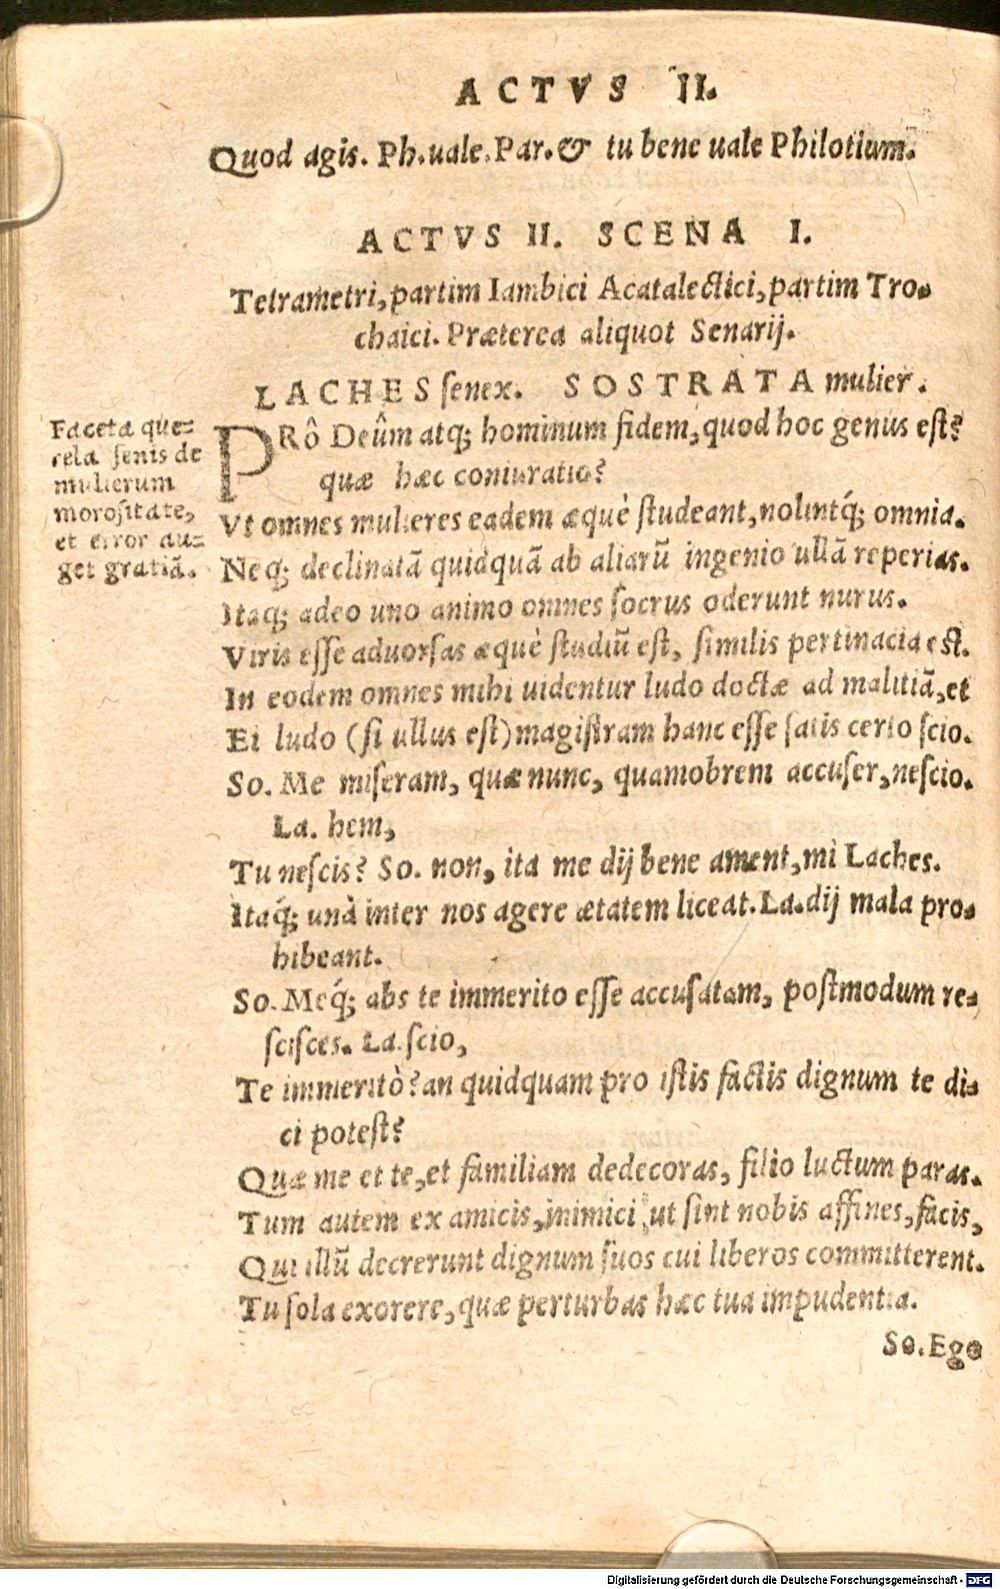 ACTVS II.
Quod agis. Ph.uale.Par.& tu bene uale Philotium.
ACTVS II. SCENA I.
Tetrametri, partim Iambici Acatalectici, partim Tro-
chaici. Præterea aliquot Senarij.
LACHES ſenex. SOSTRATA mulier.
Faceta que-
rela ſenis de
mulierum
moroſitate,
et error au-
get gratiã.
PRô Deûm atq; hominum fidem, quod hoc genus eſt?
quæ hæc coniuratio?
Vt omnes mulieres eadem æquè ſtudeant, nolintq́; omnia.
Neq; declinatã quidquã ab aliarũ ingenio ullã reperias.
Itaq; adeo uno animo omnes ſocrus oderunt nurus.
Viris eſſe aduorſas æquè ſtudiũ eſt, ſimilis pertinacia eſt.
In eodem omnes mihi uidentur ludo doctæ ad malitiã, et
Ei ludo (ſi ullus eſt) magiſtram hanc eſſe ſatis certo ſcio.
So. Me miſeram, quæ nunc, quamobrem accuſer, neſcio.
La. hem,
Tu neſcis? So. non, ita me dij bene ament, mi Laches.
Itaq́; unà inter nos agere ætatem liceat. La. dij mala pro-
hibeant.
So. Meq́; abs te immerito eſſe accuſatam, poſtmodum re-
ſciſces. La. ſcio,
Te immeritò? an quidquam pro iſtis factis dignum te di-
ci poteſt?
Quæ me et te, et familiam dedecoras, filio luctum paras.
Tum autem ex amicis, inimici ut ſint nobis affines, facis,
Qui illũ decrerunt dignum ſuos cui liberos committerent.
Tu ſola exorere, quæ perturbas hæc tua impudentia.
So. Ego
Digitalisierung gefördert durch die Deutsche Forschungsgemeinschaft - DFG